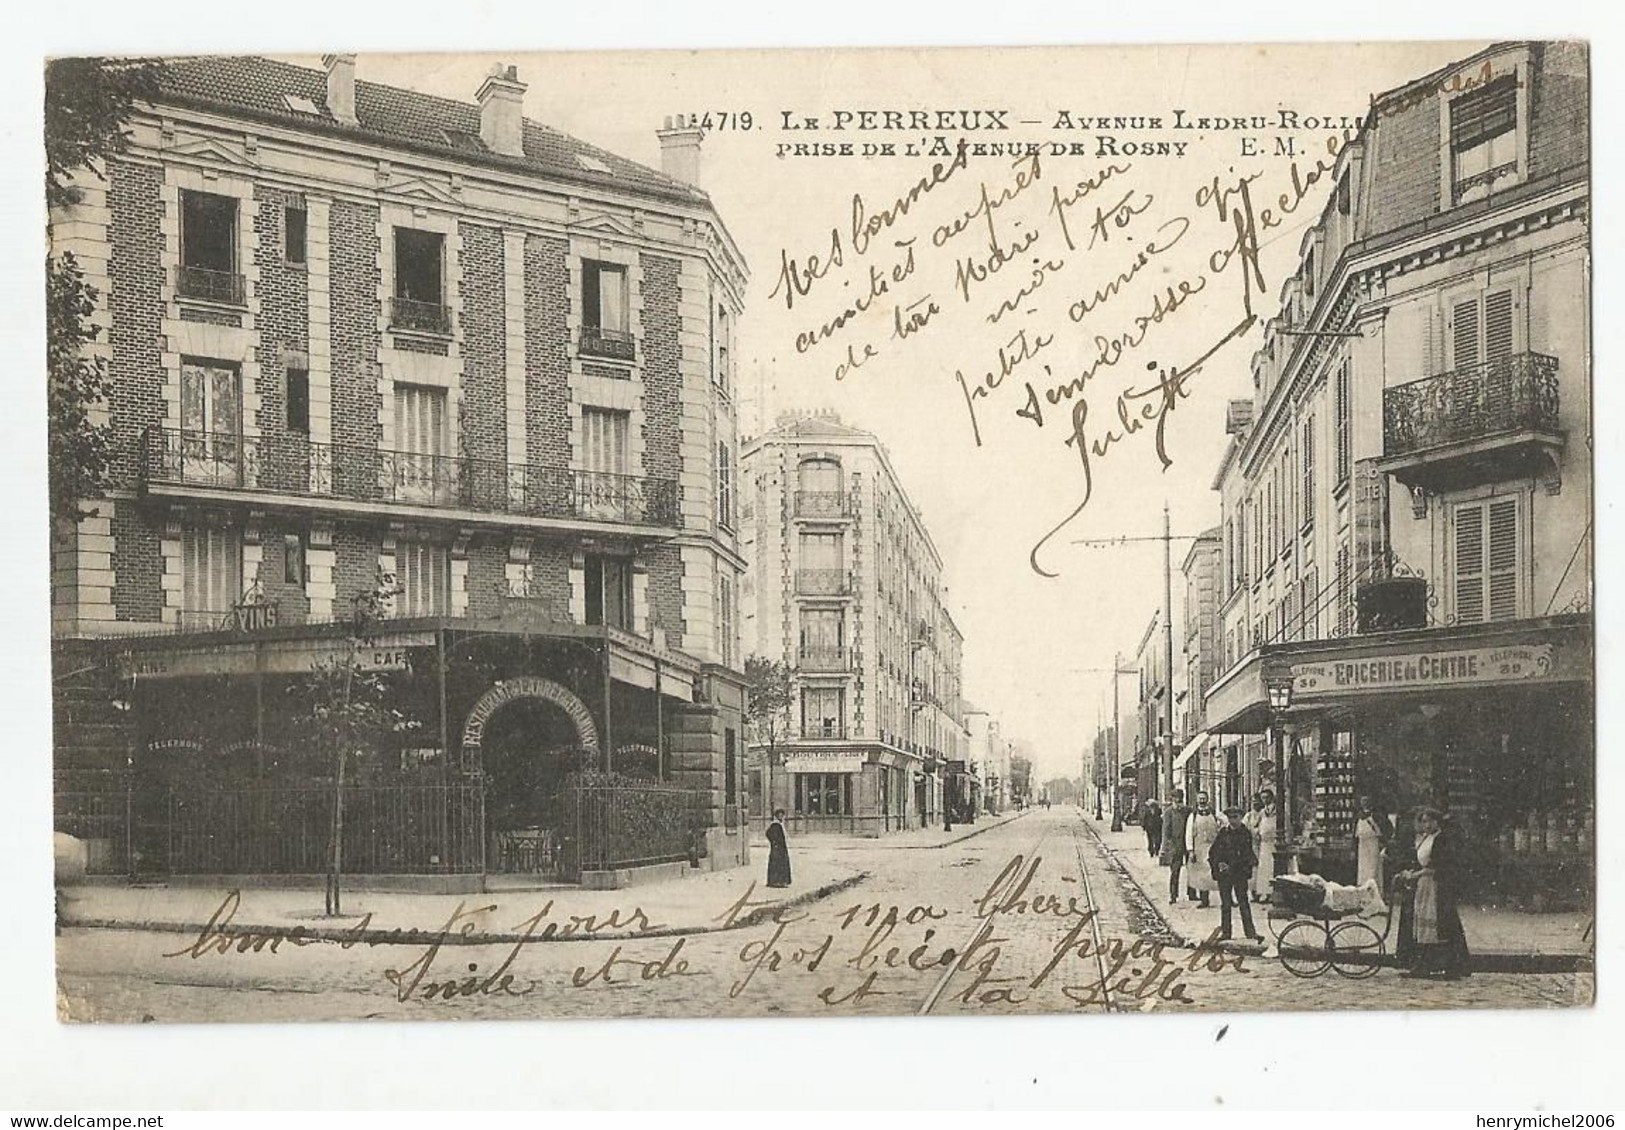 4719. LE PERREUX — AVENUE LEDRU-ROLLIN
PRISE DE L'AVENUE DE ROSNY E. M.
Mes bonnes
amitiés auprés
de ton Mari pour
moi ta
petite amie qui
t'embrasse affectueusement
Juliette
VINS
VINS
CAFÉ
RESTAURANT
TELEPHONE
TELEPHONE
TELEPHONE 39 · EPICERIE du CENTRE · TELEPHONE 39
bonne sante pour toi ma chere
Amie et de gros becots pour toi
et ta fille
www.delcampe.net
henrymichel2006